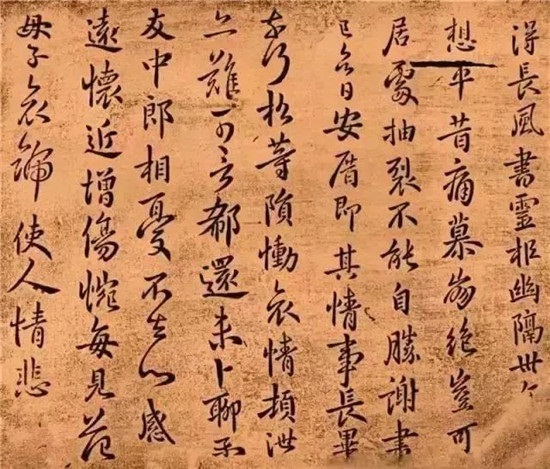 得長風書靈柩幽隔卅年
想平昔痛慕崩絕豈可
居處抽裂不能自勝謝書
已 日安厝即其情事長畢
奈何松等隕慟哀情頓泄
亦難可言郗還未卜聊示
友中郎相憂不去心感
遠懷近增傷惋每見范
母子哀號使人情悲